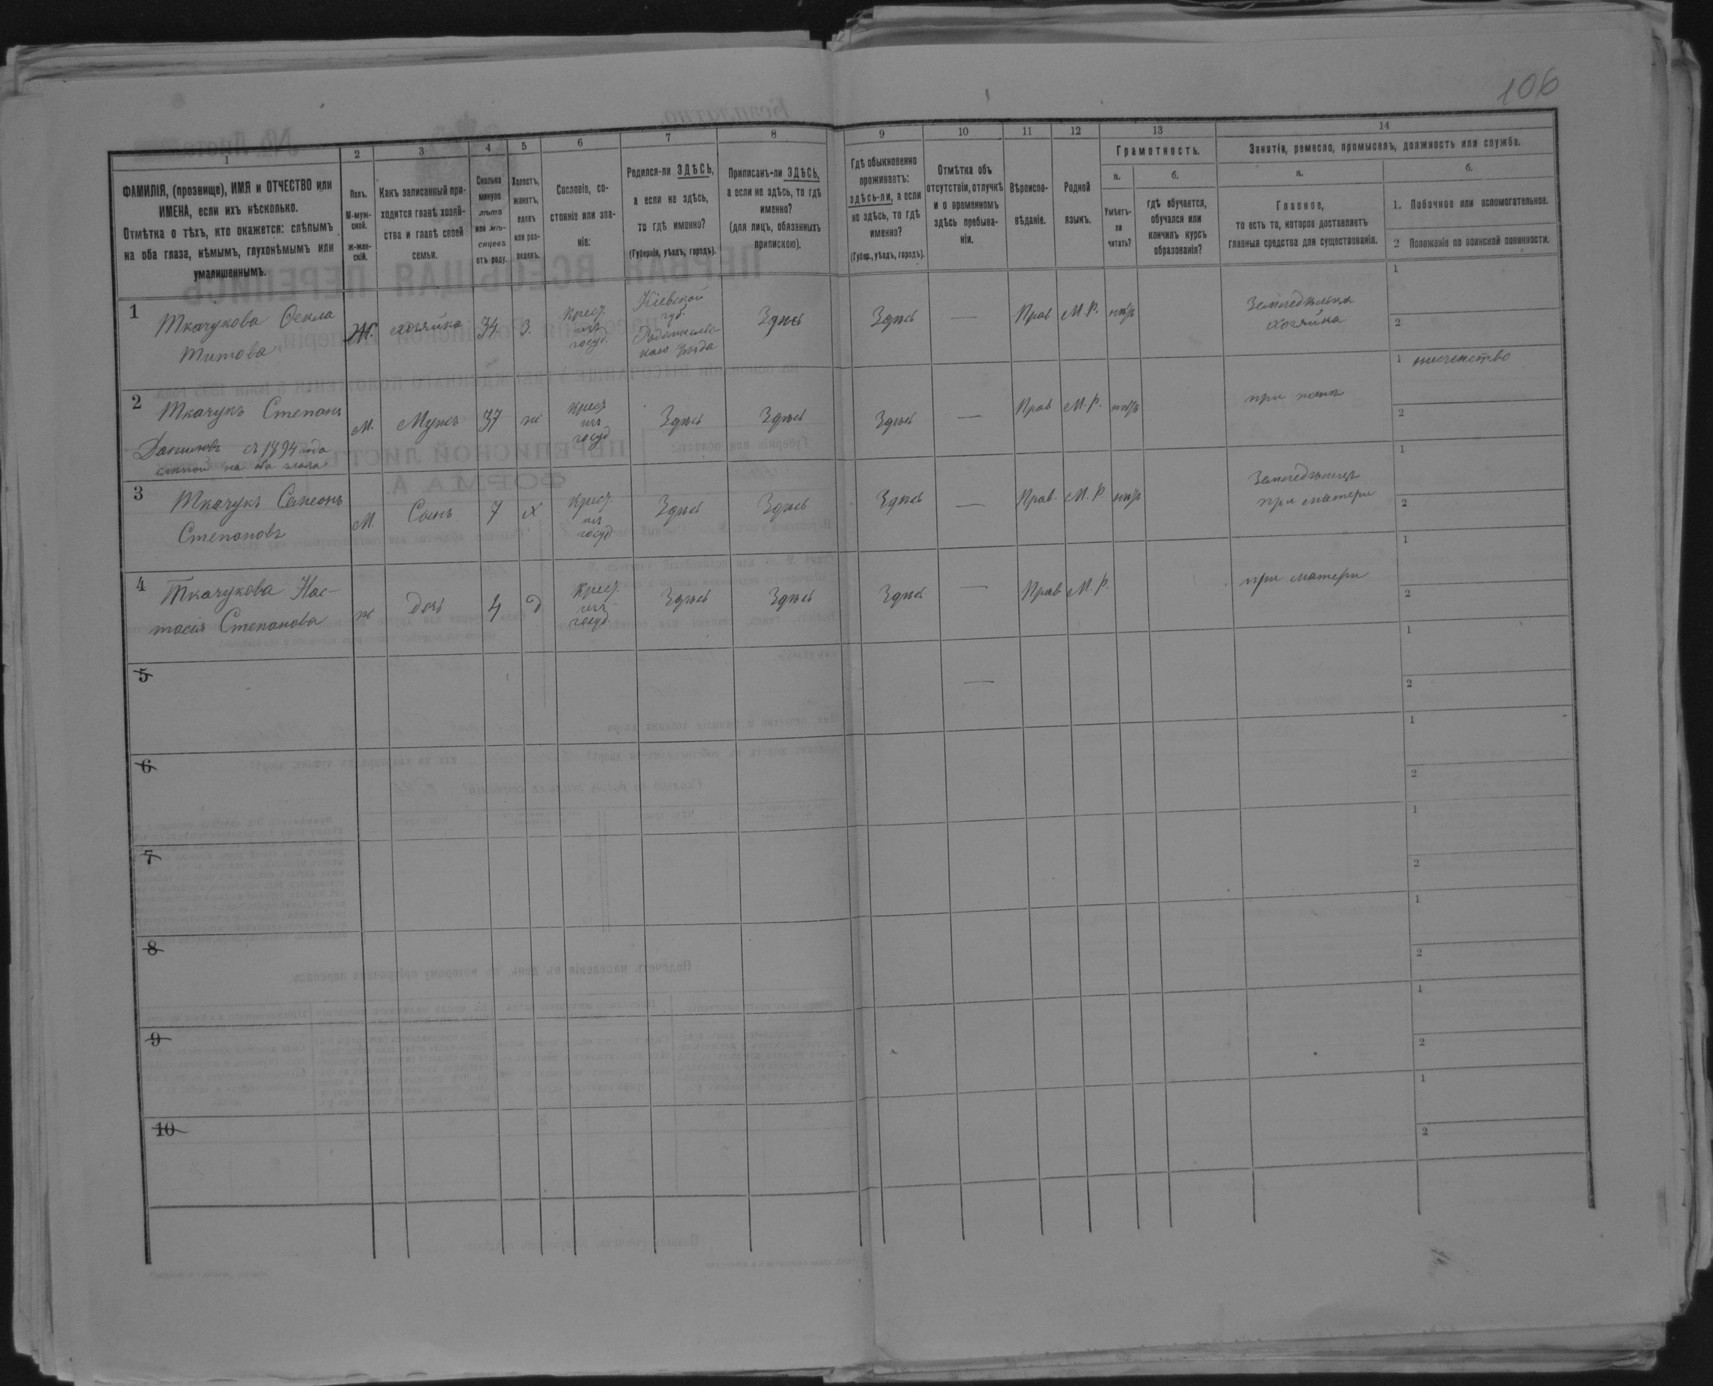 106
1
2
3
4
5
6
7
8
9
10
11
12
13
14
ФАМИЛІЯ, (прозвище), ИМЯ и ОТЧЕСТВО или
ИМЕНА, если ихъ нѣсколько.
Отмѣтка о тѣхъ, кто окажется: слѣпымъ
на оба глаза, нѣмымъ, глухонѣмымъ или
умалишеннымъ.
Полъ.
М-муж-
ской.
Ж-жен-
скій.
Какъ записанный при-
ходится главѣ хозяй-
ства и главѣ своей
семьи.
Сколько
минуло
лѣтъ
или мѣ-
сяцевъ
отъ роду.
Холостъ,
женатъ,
вдовъ
или раз-
веденъ.
Сословіе, со-
стояніе или зва-
ніе.
Родился-ли ЗДѢСЬ,
а если не здѣсь,
то гдѣ именно?
(Губернія, уѣздъ, городъ).
Приписанъ-ли ЗДѢСЬ,
а если не здѣсь, то гдѣ
именно?
(для лицъ, обязанныхъ
припискою).
Гдѣ обыкновенно
проживаетъ:
здѣсь-ли, а если
не здѣсь, то гдѣ
именно?
(Губер., уѣздъ, городъ).
Отмѣтка объ
отсутствіи, отлучкѣ
и о временномъ
здѣсь пребыва-
ніи.
Вѣроиспо-
вѣданіе.
Родной
языкъ.
Грамотность.
а.
Умѣетъ-
ли
читать?
б.
гдѣ обучается,
обучался или
кончилъ курсъ
образованія?
Занятія, ремесло, промыселъ, должность или служба.
а.
Главное,
то есть то, которое доставляетъ
главныя средства для существованія.
б.
1. Побочное или вспомогательное.
2 Положеніе по воинской повинности.
1
Ткачукова Ѳекла
Титова
Ж.
хозяйка
34
з.
Крест.
изъ
госуд.
Кіевской
губ.
Здѣсь
Здѣсь
—
Прав
М.Р.
нѣтъ
хозяйка
1
2
2
Ткачукъ Степанъ
съ 1894 года
слѣпой на оба глаза
М.
Мужъ
37
ж
Крест
изъ
госуд
Здѣсь
Здѣсь
Здѣсь
—
Прав
М.Р.
нѣтъ
1 нищенство
2
3
Ткачукъ
Степановъ
М.
Сынъ
7
х
Крест.
изъ
госуд
Здѣсь
Здѣсь
Здѣсь
—
Прав.
М.Р
нѣтъ
при матери
1
2
4
Ткачукова Нас-
тасія Степанова
ж
дочь
4
д
Крест.
изъ
госуд
Здѣсь
Здѣсь
Здѣсь
—
Прав
М.Р.
при матери
1
2
5
—
1
2
6
1
2
7
1
2
8
1
2
9
1
2
10
1
2